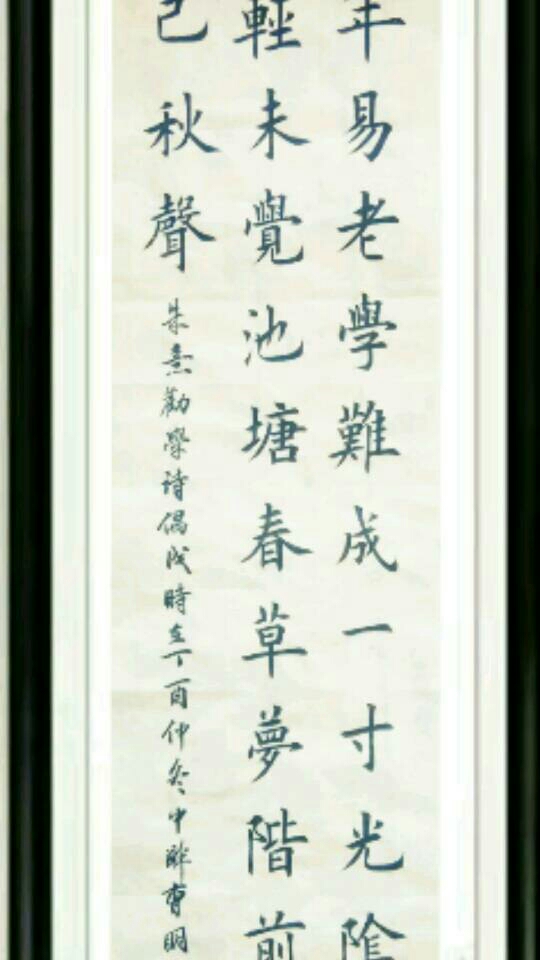 年易老學難成一寸光陰
輕未覺池塘春草夢階前
已秋聲
朱熹勸學诗偶成時在丁酉仲冬中曹明